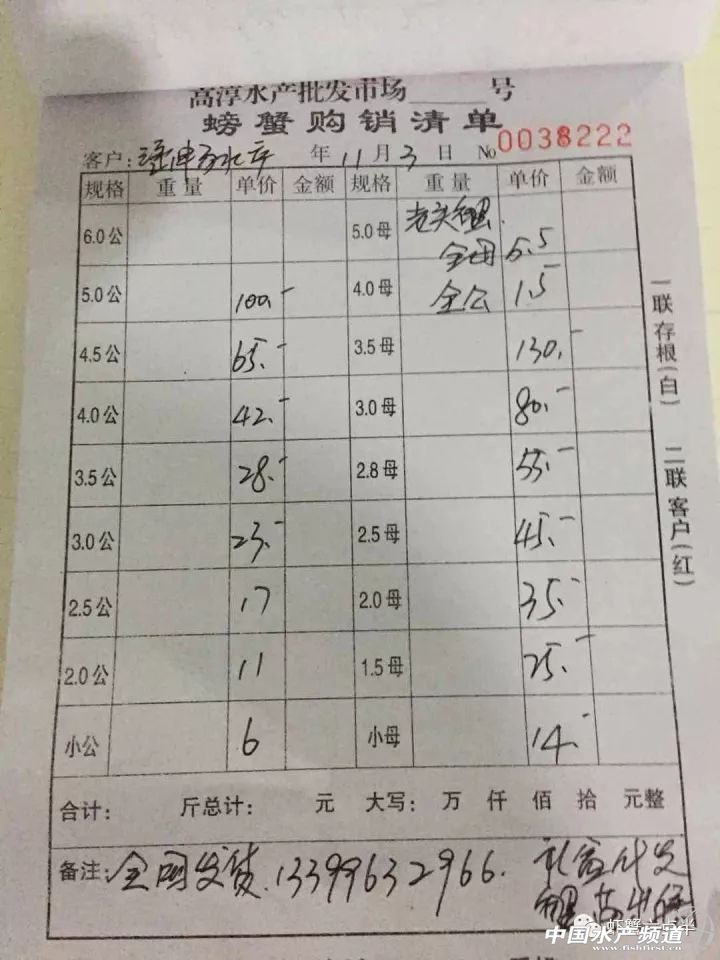 高淳水产批发市场 号
螃蟹购销清单
客户: 年 11 月 3 日 No 0038222
规格 重量 单价 金额 规格 重量 单价 金额
6.0公 5.0母 老头蟹
全母 6.5
5.0公 100.- 4.0母 全公 1.5
4.5公 65.- 3.5母 130.-
4.0公 42.- 3.0母 80.-
3.5公 28.- 2.8母 55.-
3.0公 23.- 2.5母 45.-
2.5公 17 2.0母 35.-
2.0公 11 1.5母 25.-
小公 6 小母 14.-
合计: 斤总计: 元 大写: 万 仟 佰 拾 元整
备注: 全国发货.13399632966.
一联存根(白)
二联客户(红)
虾蟹六点半
中国水产频道
www.fishfirst.cn